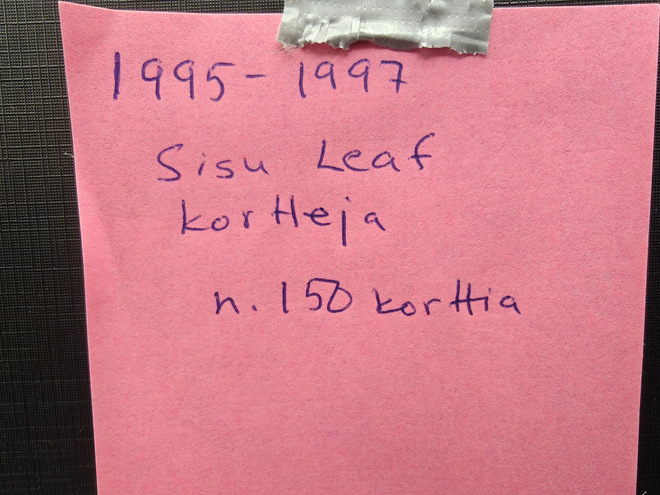 1995-1997
Sisu Leaf
kortteja
n. 150 korttia